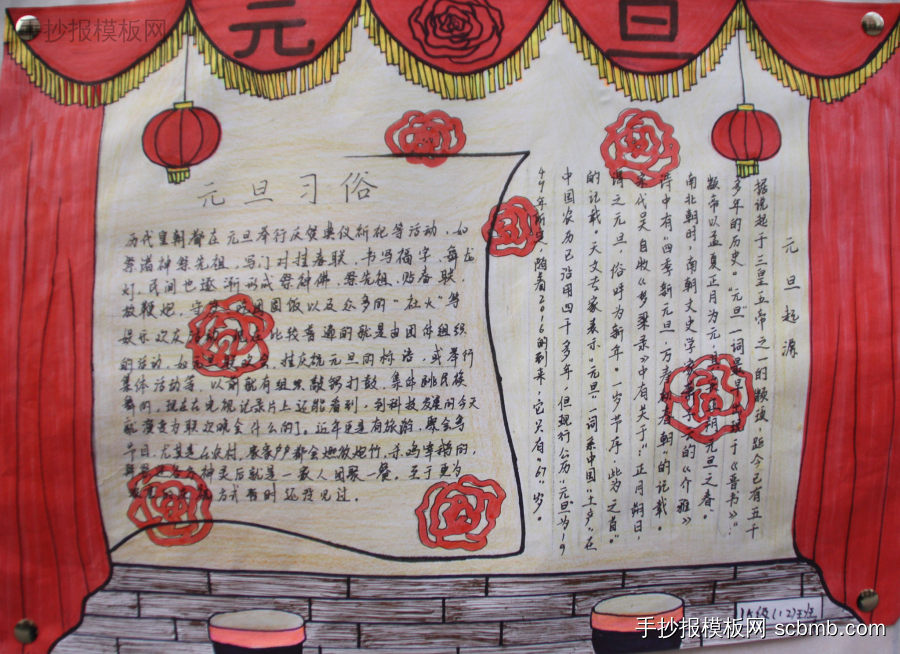 手抄报模板网
元旦
元旦习俗
历代皇朝都在元旦举行庆贺典仪祈祀等活动，如
祭诸神祭先祖，写门对挂春联，书写福字、舞龙
灯，民间也逐渐形成祭神佛、祭先祖、贴春联、
放鞭炮、守岁、吃团圆饭以及众多的“社火”等
娱乐欢庆活动。比较普遍的就是由团体组织
的活动，如元旦联欢会，挂庆祝元旦的标语，或举行
集体活动等，以前就有组织敲锣打鼓，集体跳民族
舞的，现在在电视记录片上还能看到，到科技发展的今天
就演变为联欢晚会什么的了。近年更是有旅游、聚会等
节目，尤其是在农村，家家户户都会燃放炮竹，杀鸡宰鹅的，
各方神灵后就是一家人团聚一餐。至于更为
方式暂时还没见过。
元旦起源
据说起于三皇五帝之一的颛顼，距今已有五千
多年的历史。“元旦”一词最早出现于《晋书》：“
颛帝以孟夏正月为元，其实正朔元旦之春。”
南北朝时，南朝文史学家萧子云的《介雅》
诗中有“四季新元旦，万寿初春朝”的记载。
宋代吴自牧《梦梁录》中有关于“：正月朔日，
谓之元旦，俗呼为新年。一岁节序，此为之首。”
的记载。天文专家表示“元旦”一词系中国“土产”在
中国农历已沿用四千多年，但现行公历“元旦”为19
49年所定，随着2016的到来，它只有“67”岁。
手抄报模板网 scbmb.com